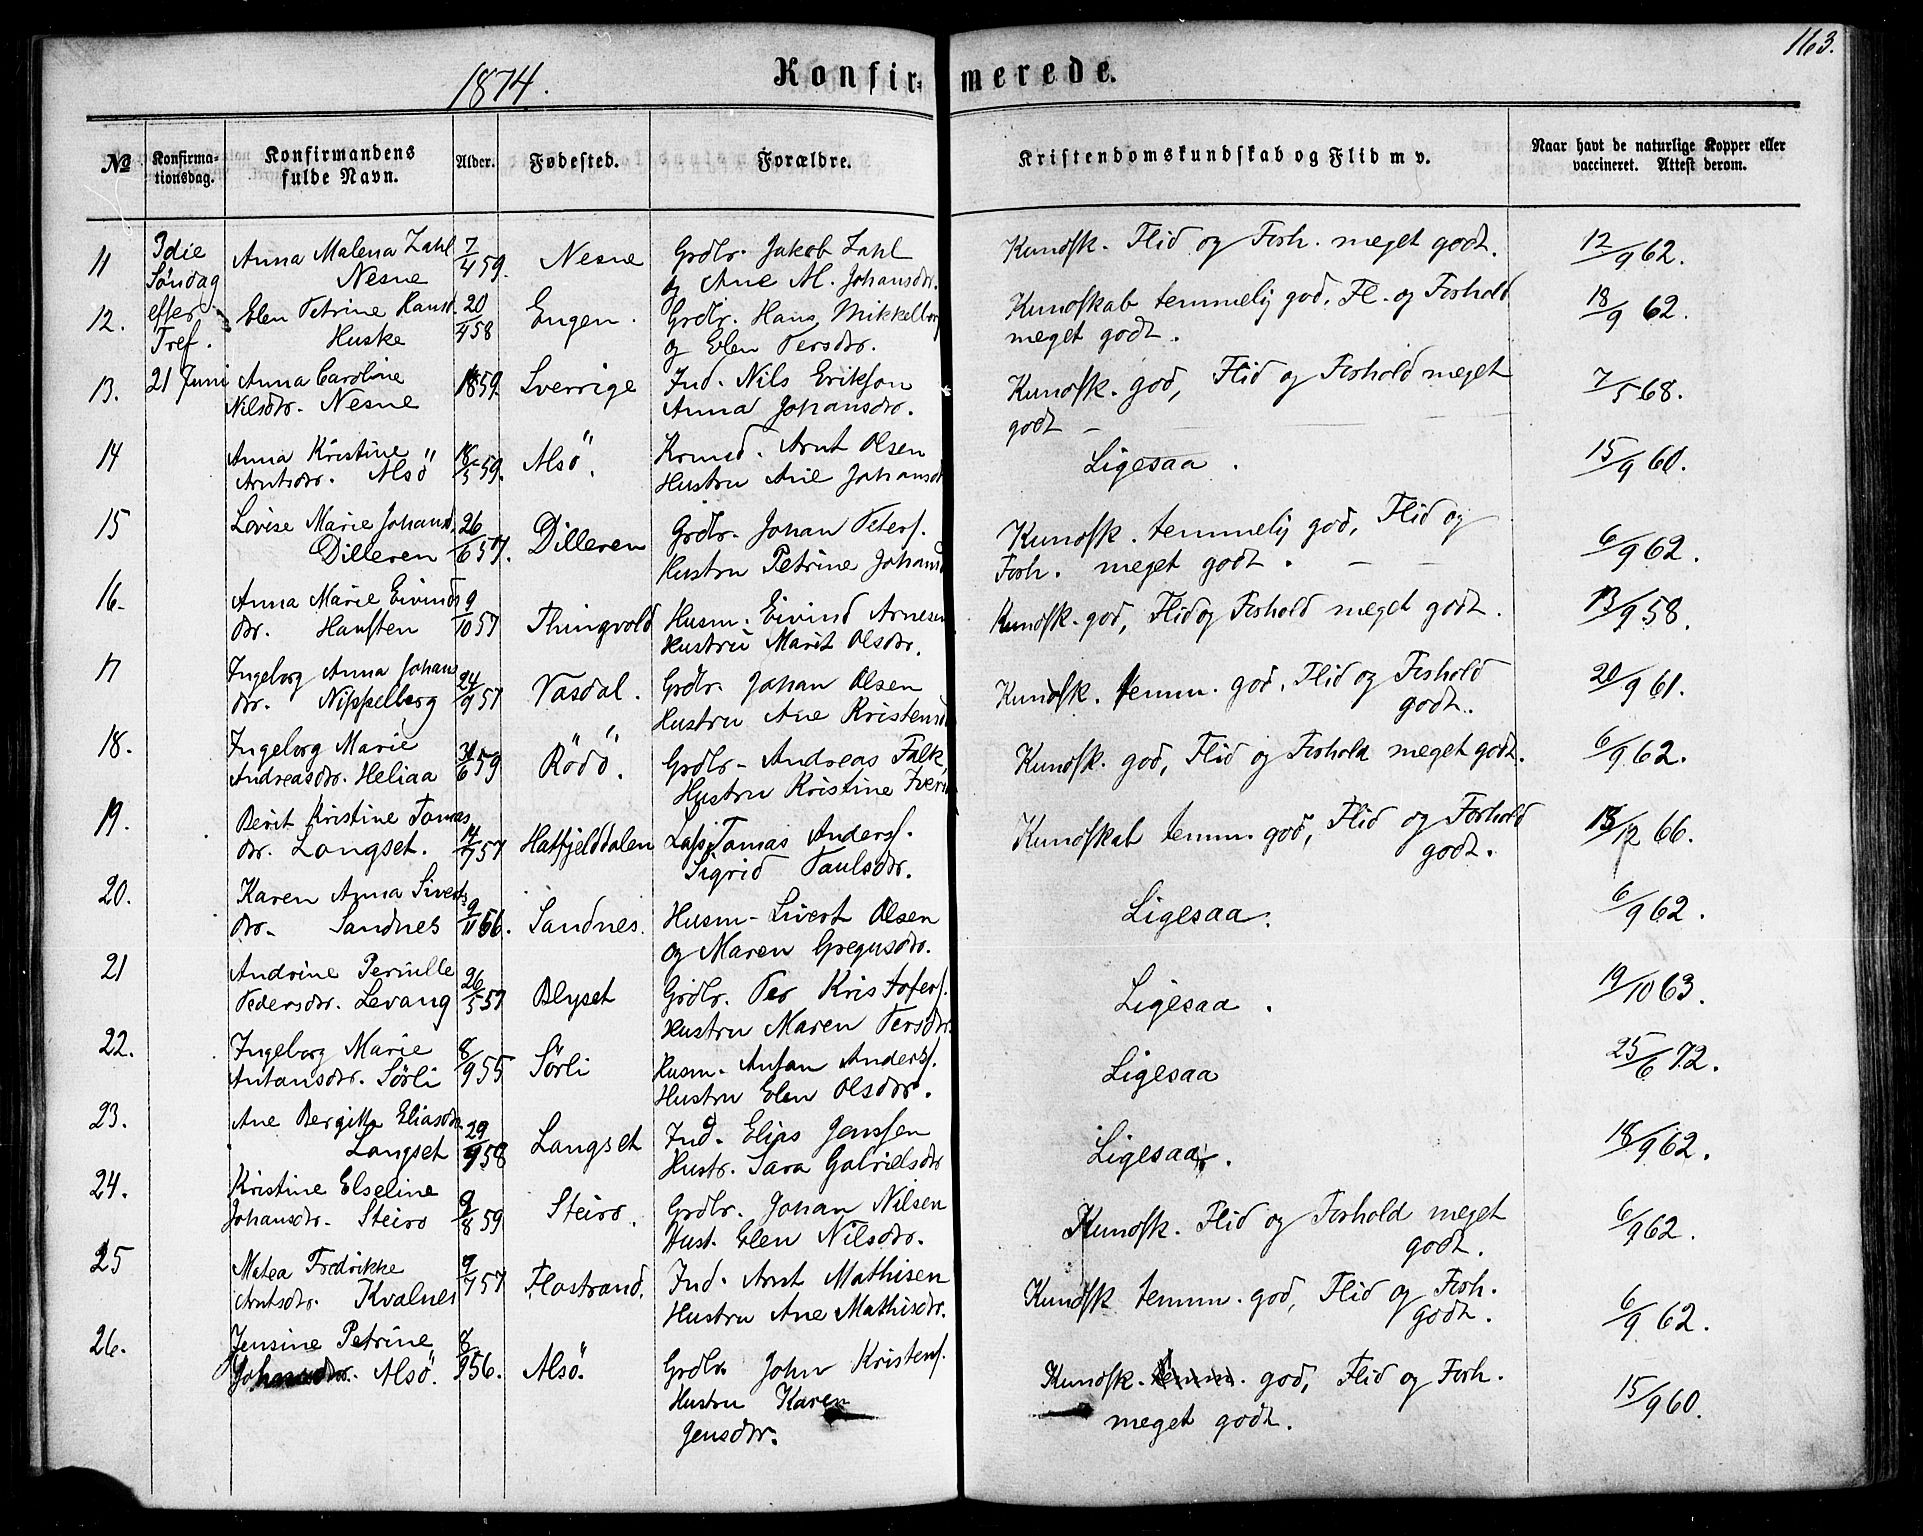 163.
1874.
Konfirmerede.
№ Konfirmationsdag. Konfirmandens fulde Navn. Alder. Fødested. Forældre. Kristendomskundskab og Flid m v. Naar havt de naturlige Kopper eller vaccineret. Attest derom.
11 3die Anna Malena Zahl 7/4 59. Nesne Grdbr. Jakob Zahl Kundsk. Flid og Forh. meget godt. 12/9 62.
Søndag Nesne og Ane M. Johansdr.
12. efter Elen Petrine Hansd. 20/4 58 Engen. Grdbr. Hans Kundskab temmelig god, Fl. og Forhold 18/9 62.
Tref. Huske og Elen Persdr. meget godt.
13. 21 Juni Anna Caroline 1859 Sverrige Ind. Nils Erikson Kundsk. god, Flid og Forhold meget 7/5 68.
Nilsdr. Nesne Anna Johansdr. godt
14 Anna Kristine 18/5 59. Alsö. Arnt Olsen Ligesaa. 15/9 60.
Arntsdr. Alsö Hustru Ane Johansdr
15 Lovise Marie Johansd. 26/6 57. Dilleren Grdbr. Johan Peters. Kundsk. temmelig god, Flid og 6/9 62.
Dilleren Hustru Petrine Johansd Forh. meget godt.
16. Anna Marie Eivinds 9/10 57 Thingvold Husm. Eivind Arnesen Kundsk. god, Flid og Forhold meget godt. 13/9 58.
dr. Hansten Hustru Marit Olsdr.
17 Ingeborg Anna Johans 24/9 57 Vasdal. Grdbr. Johan Olsen Kundsk. temm. god, Flid og Forhold 20/9 61.
dr. Nippelberg Hustru Ane Kristensd godt.
18. Ingeborg Marie 59 Rödö. Grdbr. Andreas Falk Kundsk. god, Flid og Forhold meget godt. 6/9 62.
Andreasdr. Heliaa Hustru Kristine
19. Berit Kristine Tomas 14/7 57 Hatfjelddalen Lap Tomas Anders. Kundskab temm. god, Flid og Forhold 13/12 66.
dr. Langset. Sigrid Paulsdr. godt.
20. Karen Anna Siverts 9/11 56. Sandnes. Husm. Sivert Olsen Ligesaa. 6/9 62.
dr. Sandnes og Maren Gregusdr.
21 Andrine Pernille 26/5 57 Blyset Grdbr. Per Kristofers. Ligesaa. 19/10 63.
Pedersdr. Levang Hustru Maren Persdr.
22. Ingeborg Marie 8/9 55 Sörli Husm. Antan Anders. Ligesaa 25/6 72.
Antansdr. Sörli Hustru Elen Olsdr.
23. Ane Bergitta Eliasdr. 29/9 58 Langset Ind. Elias Jenssen Ligesaa. 18/9 62.
Langset Hustr. Sara Gabrielsdr
24. Kristine Elseline 9/8 59 Steiro. Grdbr. Johan Nilsen Kundsk. Flid og Forhold meget 6/9 62.
Johansdr. Steiro Hust. Elen Nilsdr. godt.
25 Matea Fredrikke 9/7 57 Flostrand. Ind. Arnt Mathisen Kundsk temm. god, Flid og Forh. 6/9 62.
Arntsdr. Kvalnes Hustru Ane Mathisdr. godt.
26. Jensine Petrine 8/9 56. Alsö. Grdbr John Kristens. Kundsk. temm. god, Flid og Forh. 15/9 60.
Alsö. Hustru Karen meget godt.
Jensdtr.